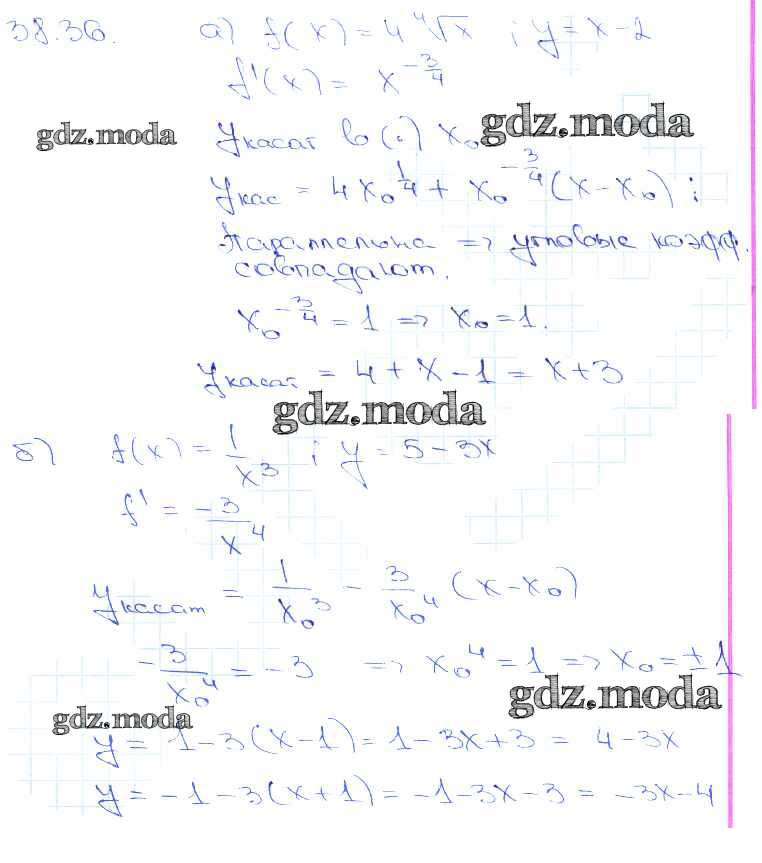 38.36. а) f(x) = 4 ⁴√x ; y = x − 2
f'(x) = x^(−3/4)
gdz.moda
yкасат в (·) x₀
gdz.moda
yкас = 4x₀^(1/4) + x₀^(−3/4) (x − x₀) ;
Параллельна => угловые коэфф.
совпадают.
x₀^(−3/4) = 1 => x₀ = 1.
yкасат = 4 + x − 1 = x + 3
gdz.moda
б) f(x) = 1/x³ ; y = 5 − 3x
f' = −3/x⁴
yкасат = 1/x₀³ − 3/x₀⁴ (x − x₀)
−3/x₀⁴ = −3 => x₀⁴ = 1 => x₀ = ±1
gdz.moda
gdz.moda
y = 1 − 3(x − 1) = 1 − 3x + 3 = 4 − 3x
y = −1 − 3(x + 1) = −1 − 3x − 3 = −3x − 4